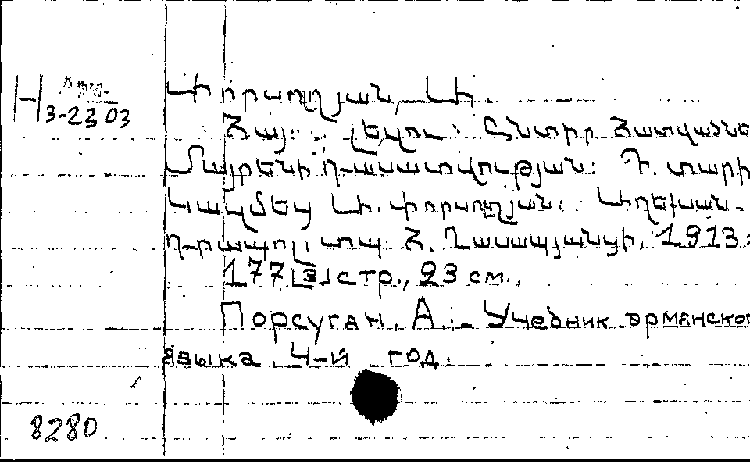 H
3-2303
Փորսուղյան, Ա.
Հայոց լեզու: Ընտիր հատվածնե
Մայրենի դասատվության: Դ. տարի
Կազմեց Ա. Փորսուղյան: Աղեխան-
դրապոլ, տպ. Հ. Ղասապյանցի, 1913:
177 [3] стр., 23 см.,
Порсуган, А. - Учебник армянског
языка 4-й год.
8280